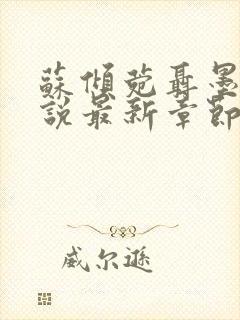 蘇傾菀聶墨
說最新章節
威尔遜